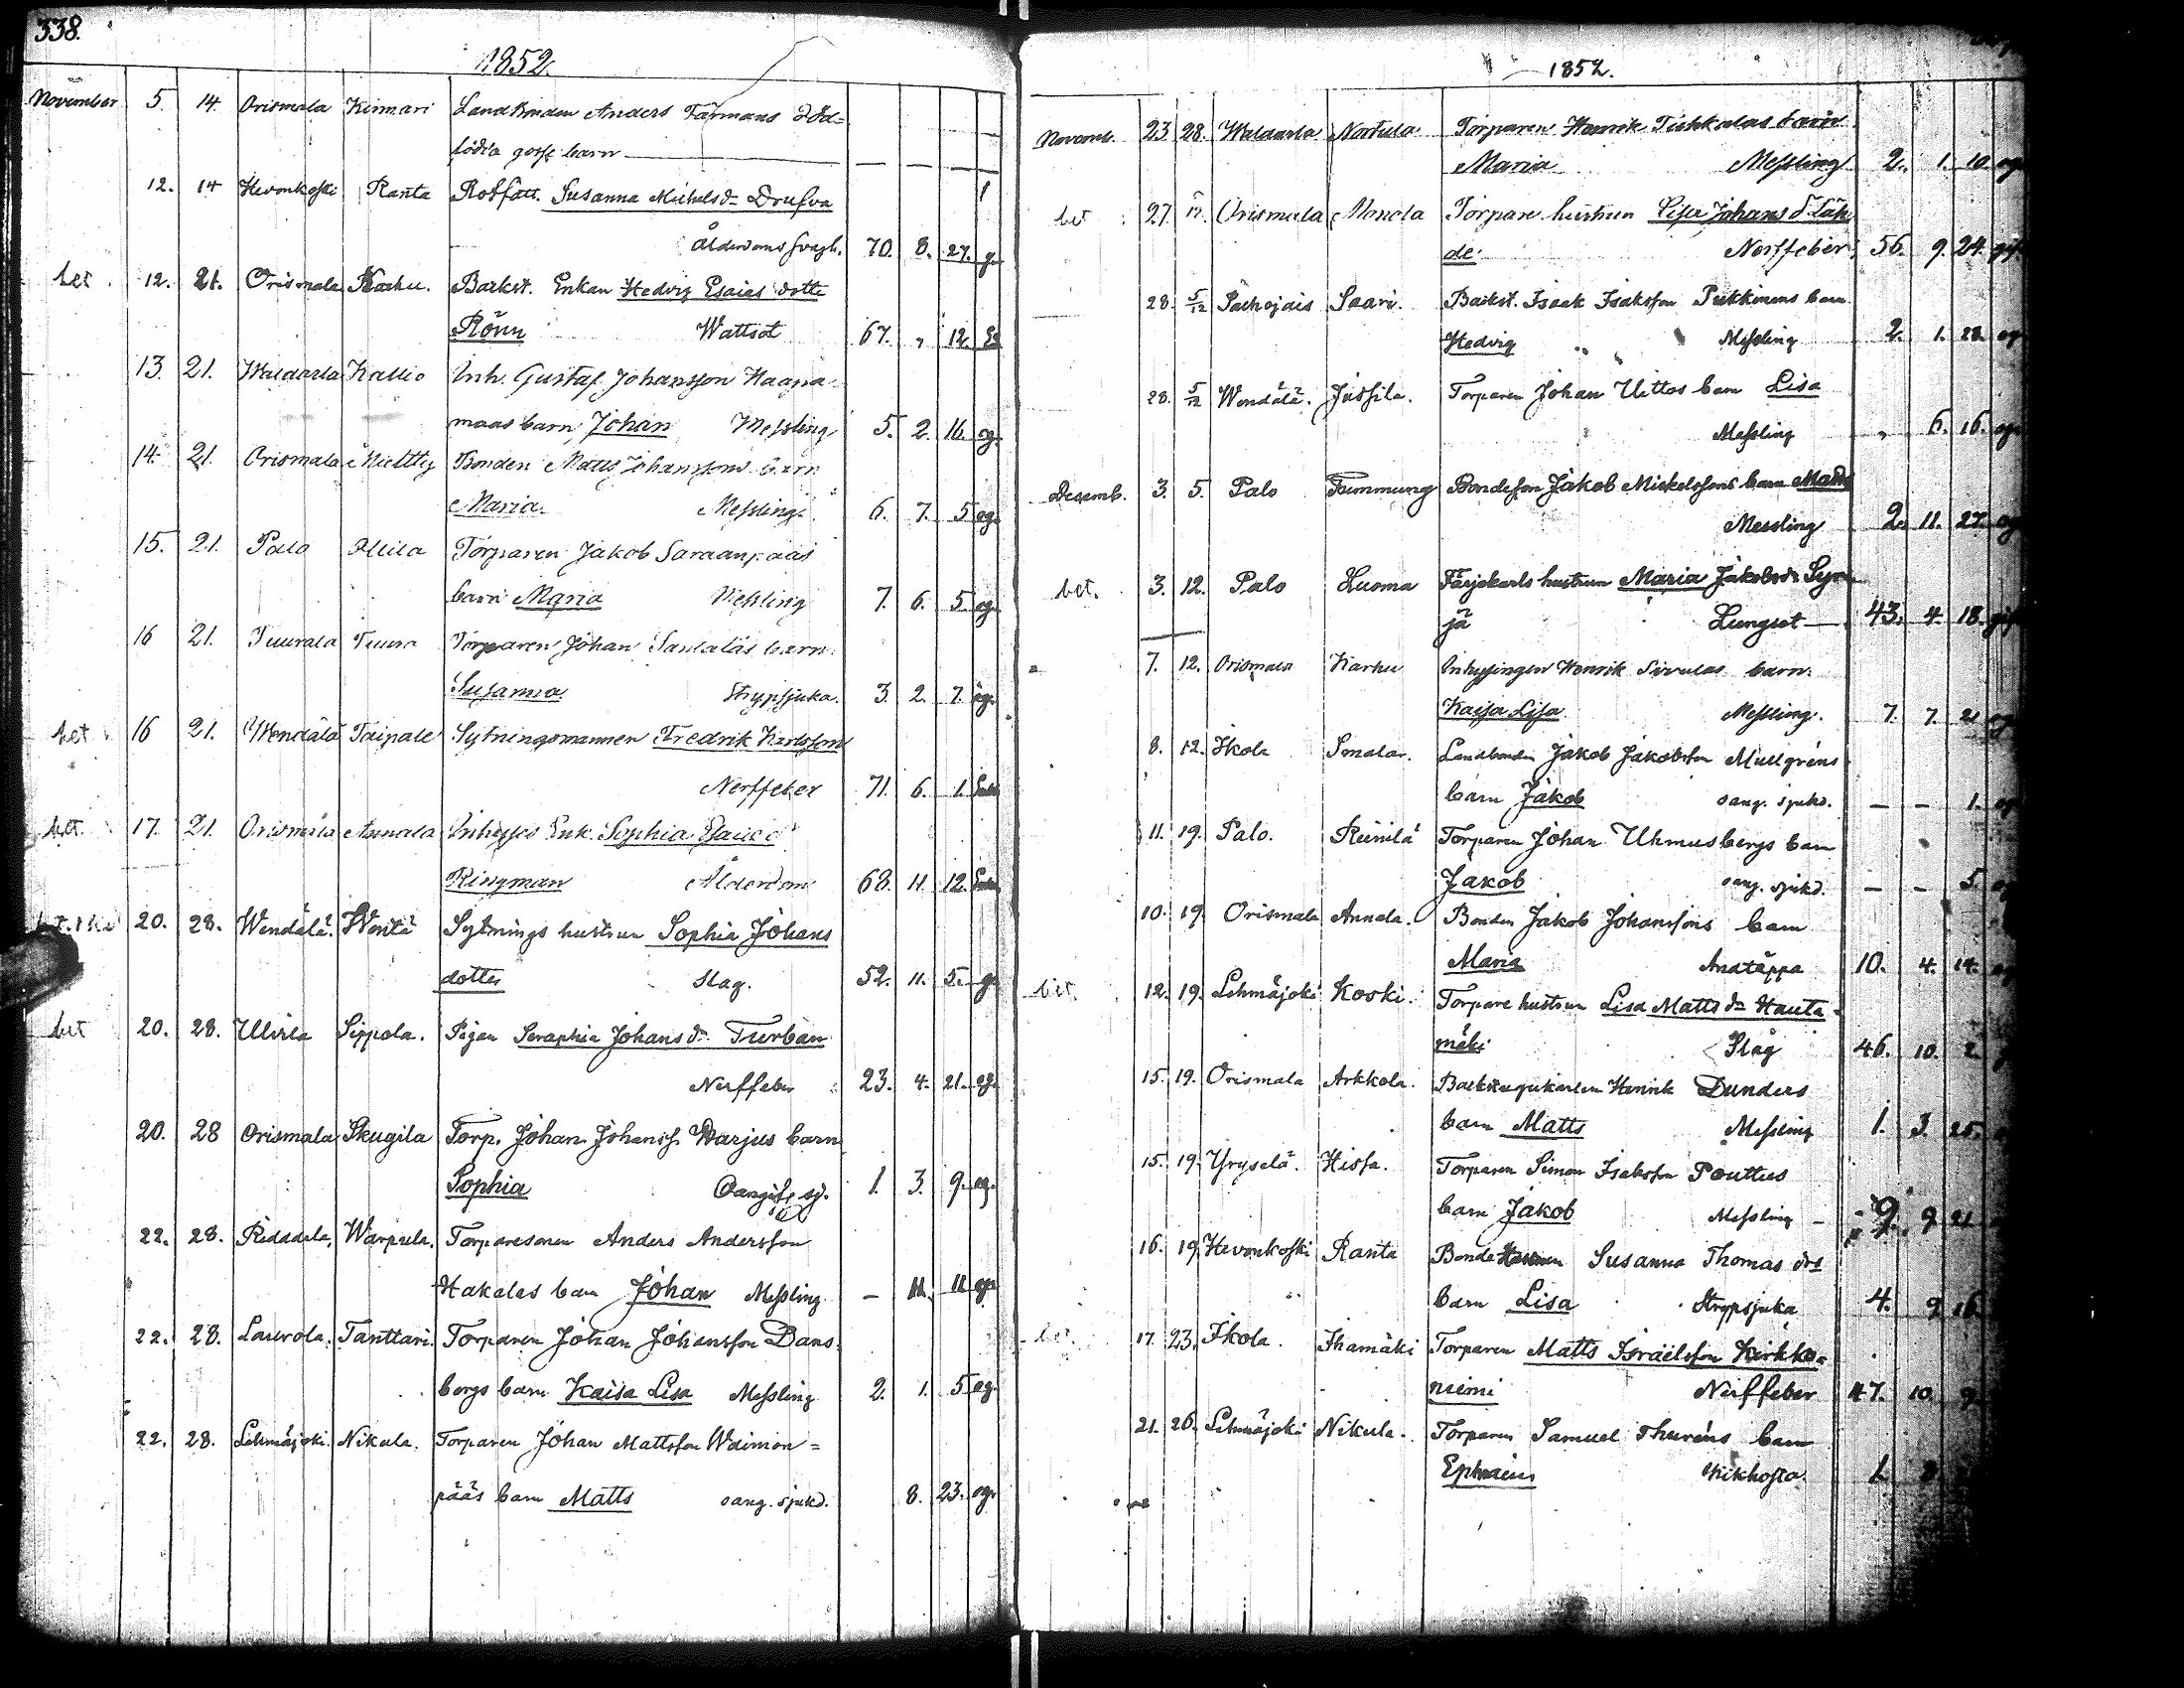 338.
1852.
November 5. 14. Orismala Kinnari Landbonden Anders Färmans död=
födda gosse barn
12. 14 Hevonkoski Ranta Rotfatt. Susanna Michelsd= Drufva
Ålderdoms svagh. 70. 8. 27. g.
bet 12. 21. Orismala Karhu. Backst. Enkan Hedvig Esaias dotte
Rönn Wattsot 67. „ 12.
13. 21. Waldarla Kallio Inh. Gustaf Johansson Haapa
maas barn Johan Messling 5. 2. 16. og.
14. 21. Orismala Bonden Matts Johanssons barn
Maria. Messling. 6. 7. 5 og.
15. 21. Palo Allila Torparen Jakob Saraanpääs
barn Maria Messling 7. 6. 5. og.
16 21. Tuurala Tuura Torparen Johan Santalas barn.
Susanna Strypsjuka. 3. 2. 7. og.
bet 16 21. Wendälä Taipale Sytningsmannen Fredrik Karlsson
Nerffeber 71. 6. 1.
bet. 17. 21. Orismala Annala Inhyses Enk. Sophia
Ringman Ålderdom 68. 11. 12.
20. 28. Wendälä. Wentä Sytnings hustrun Sophia Johans
dotter Slag. 52. 11. 5. g.
bet 20. 28. Ulvila Sippola. Pigan Seraphia Johans d= Turban
Nerffeber 23. 4. 21. og.
20. 28 Orismala Skugila Torp. Johan Johanss. Warjus barn
Sophia Oangif. sj. 1. 3. 9. og.
22. 28. Riddala, Warpula. Torparesonen Anders Andersson
Hakalas barn Johan Messling — 11. 11 og.
22. 28. Laurola. Tanttari. Torparen Johan Johansson Dans
bergs barn Kaisa Lisa Messling 2. 1. 5 og.
22. 28. Lehmäjoki Nikula. Torparen Johan Mattsson Wainion=
pääs barn Matts oang. sjukd. 8. 23. og.
1852.
Novemb. 23 28. Waldarla Nortula Torparen Henrik Tishkalas barn
Maria Messling 2. 1. 10. og
bet 27. Orismala Manola Torpare hustrun Lisa Johans d. Läh
de Nerffeber 56. 9. 24. gif
28. 5/12 Pahojais Saari. Backst. Isaak Isaksson Pukkinens barn
Hedvig Messling 2. 1. 28. og
28. 5/12 Wendälä. Jussila. Torparen Johan Uittos barn Lisa
Messling „ 6. 16. og
Decemb. 3. 5. Palo Tummung Bondeson Jakob Mickelssons barn Matts
Messling 2. 11. 27. og
bet. 3. 12. Palo Luoma Färjekarls hustrun Maria Jakobsd= Syr
jä Lungsot 43. 4. 18. gif
7. 12. Orismala Karhu Inhysingen Henrik Sirvulas barn.
Kaisa Lisa Messling. 7. 7. 21 og
8. 12. Ikola Smalar. Landbonden Jakob Jakobsson Mullgrens
barn Jakob oang. sjukd. — — 1. og
11. 19. Palo. Reinilä Torparen Johan Uhmusbergs barn
Jakob oang. sjukd. — — 5. og
10. 19. Orismala Annala. Bonden Jakob Johanssons barn
Maria Andtäppa 10. 4. 14. og
bet. 12. 19. Lehmäjoki Koski. Torpare hustrun Lisa Matts d= Hauta=
mäki Slag 46. 10. 2.
15. 19. Orismala Arkkola. Henrik Dunders
barn Matts Messling 1. 3. 25.
15. 19. Yryselä. Hissa. Torparen Simon Isaksson Pouttus
barn Jakob Messling 9. 9 21
16. 19. Hevonkoski Ranta Susanna Thomas dr=
barn Lisa Strypsjuka 4. 9 16
bet. 17. 23. Ikola. Ihamäki Torparen Matts Israelsson Kirkko=
niemi Nerffeber 47. 10. 9
21. 26. Lehmäjoki Nikula. Torparen Samuel Thurens barn
Ephraim Kikhosta. 1.